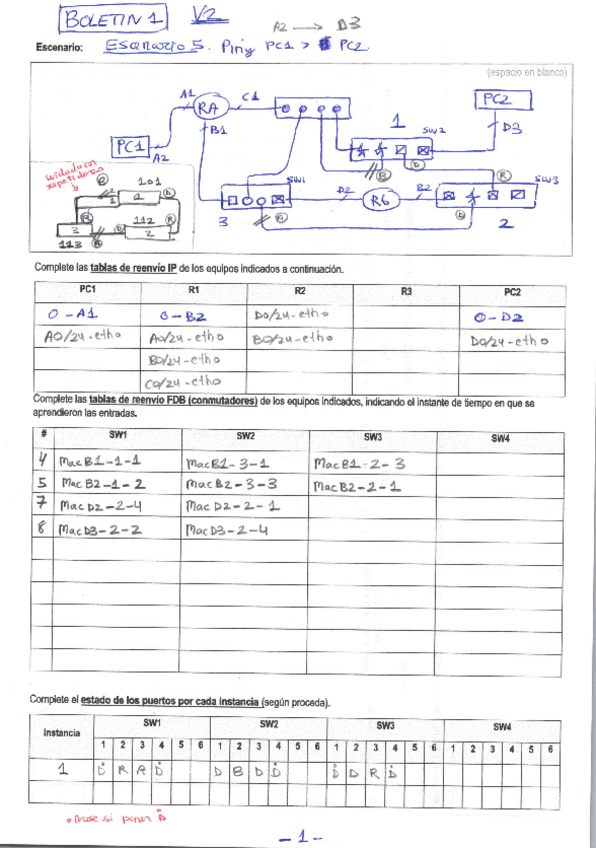 BOLETIN 1 V2
A2 → D3
Escenario: Escenario 5. Ping PC1 > PC2
(espacio en blanco)
A1 RA C1
PC2
B1
1
SW2
D3
PC1
A2
101
1
112
3
2
113
SW1
3
D2 R6 B2
SW3
2
Complete las tablas de reenvío IP de los equipos indicados a continuación.
PC1 R1 R2 R3 PC2
0 - A1 0 - B2 D0/24 - eth0 0 - D2
A0/24 - eth0 A0/24 - eth0 B0/24 - eth0 D0/24 - eth0
B0/24 - eth0
C0/24 - eth0
Complete las tablas de reenvío FDB (conmutadores) de los equipos indicados, indicando el instante de tiempo en que se
aprendieron las entradas.
# SW1 SW2 SW3 SW4
4 Mac B1 - 1 - 1 Mac B1 - 3 - 1 Mac B1 - 2 - 3
5 Mac B2 - 1 - 2 Mac B2 - 3 - 3 Mac B2 - 2 - 1
7 Mac D2 - 2 - 4 Mac D2 - 2 - 1
8 Mac D3 - 2 - 2 Mac D3 - 2 - 4
Complete el estado de los puertos por cada instancia (según proceda).
Instancia SW1 SW2 SW3 SW4
1 2 3 4 5 6 1 2 3 4 5 6 1 2 3 4 5 6 1 2 3 4 5 6
1 Ḋ R A Ḋ D B D Ḋ Ḋ D R Ḋ
- 1 -